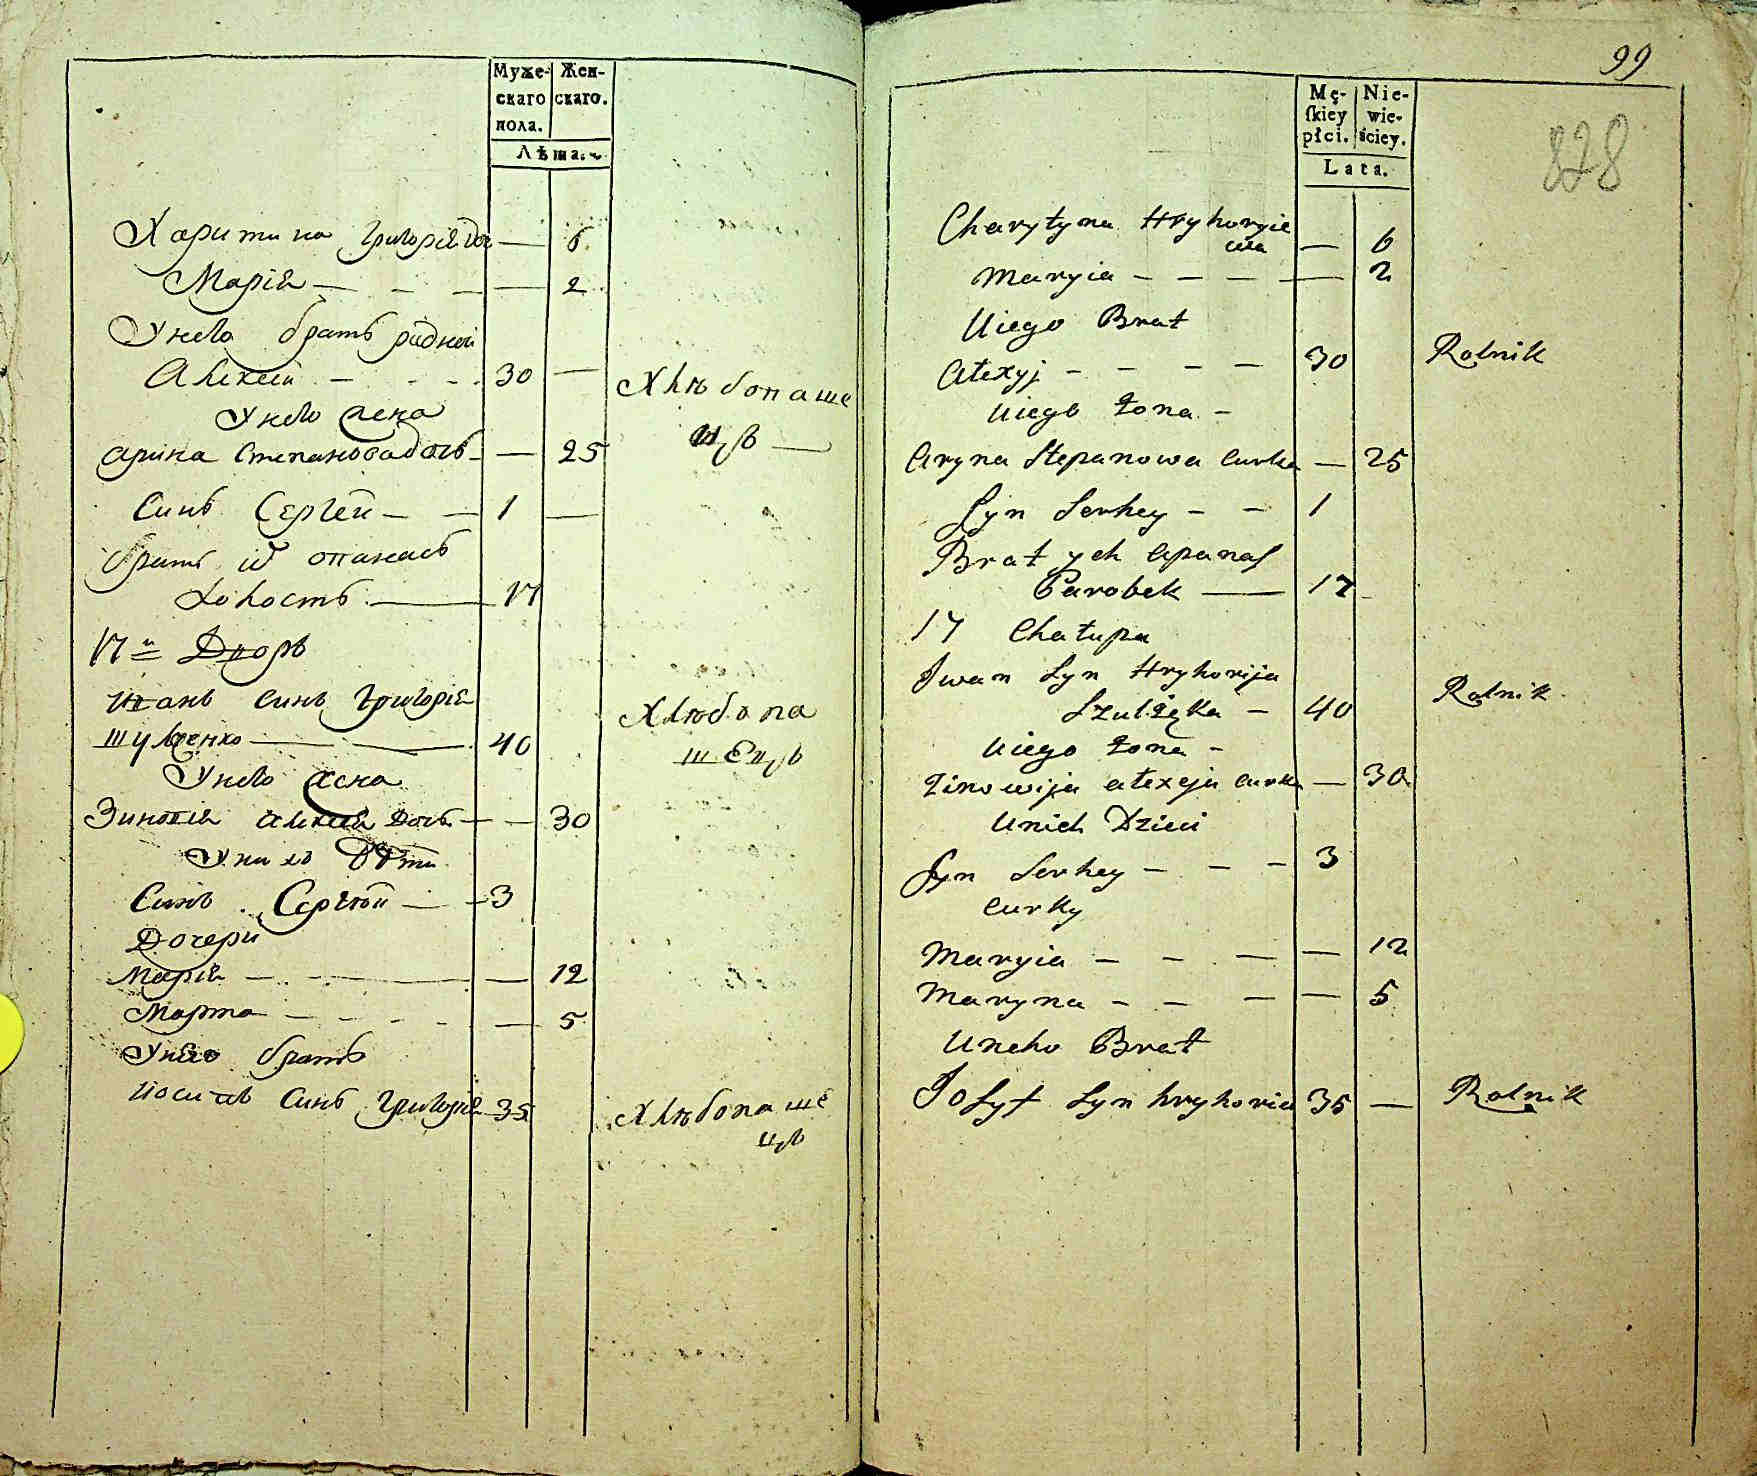 Муже- Жен-
скаго скаго.
пола.
Лѣта.
Харитина Григорієва — 6
Маріѧ — — — — 2
У него братъ рідный
Алексей — — — 30 —
Хлѣбопаше
У него жена
цъ —
Арина Степанова дочь — — 25
Синъ Сергей — — 1 —
братъ их опанасъ
Холостъ — 17
17й Дворъ
Иванъ Синъ Григорія
Хлѣбопа
Шулженко — — 40
шецъ
У него жена
Зиновія Алексея Дочь — — 30
У нихъ Дѣти
Синъ Сергѣй — — 3
Дочери
Марія — — — — 12
Марта — — — — — 5
У него братъ
Іосипъ Синъ Григорія 35
Хлѣбопаше
цъ
99
Mę- Nie-
ſkiey wie-
płci. ściey.
Lata.
828
Charytyna Hryhoryie
wa — 6
Maryia — — — — — 2
Uiego Brat
Alexyj — — — — 30 Rolnik
Uiego Żona —
Aryna Stepanowa Curka — 25
Syn Serhey — — 1
Brat ych Apanas
Parobek — 17
17 Chałupa
Iwan Syn Hryhorija
Szulżęka — 40 Rolnik
Uiego Żona —
Zinowija Alexeja Curka — 30
Unich Dzieci
Syn Serhey — — — 3
Curky
Maryia — — — — 12
Maryna — — — — 5
Uneho Brat
Josyf Syn hryhoria 35 — Rolnik